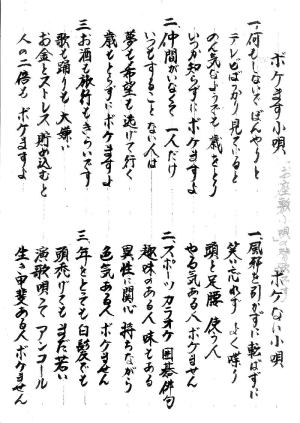 ボケます小唄
一、何もしないでぼんやりと
テレビばっかり見ていると
のん気なようでも歳をとり
いつか知らずにボケますよ
二、仲間がいなくて一人だけ
いつもすることない人は
夢も希望も逃げて行く
歳もとらずにボケますよ
三、お酒も旅行もきらいです
歌も踊りも大嫌い
お金とストレス貯め込むと
人の二倍もボケますよ
お座敷小唄の替歌です
ボケない小唄
一、風邪を引かずに転ばずに
笑い忘れずよく喋り
頭と足腰使う人
やる気ある人ボケません
二、スポーツカラオケ囲碁俳句
趣味のある人味もある
異性に関心持ちながら
色気ある人ボケません
三、年をとっても白髪でも
頭禿げてもまだ若い
演歌唄ってアンコール
生き甲斐ある人ボケません